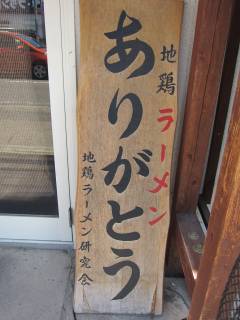 地鶏ラーメン
ありがとう
地鶏ラーメン研究会